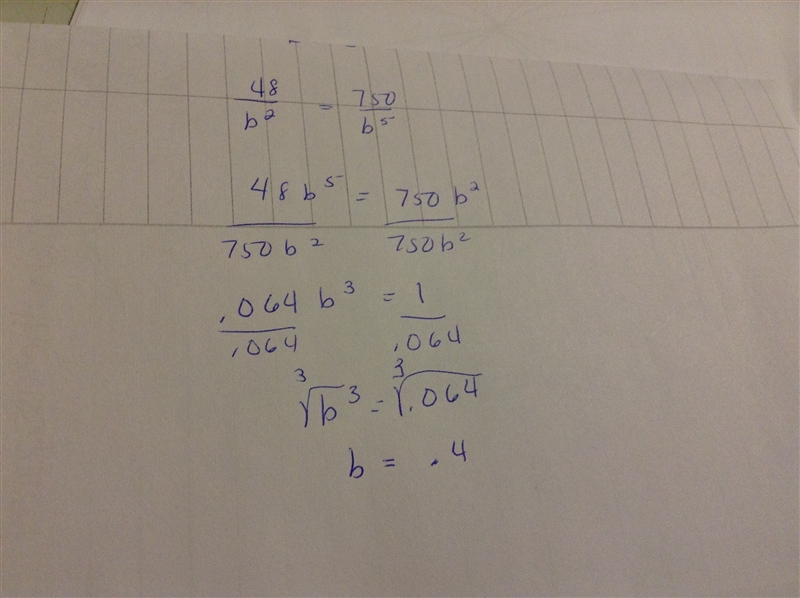 48/b² = 750/b⁵
48b⁵/750b² = 750b²/750b²
.064b³/.064 = 1/.064
³√b³ = ³√.064
b = .4